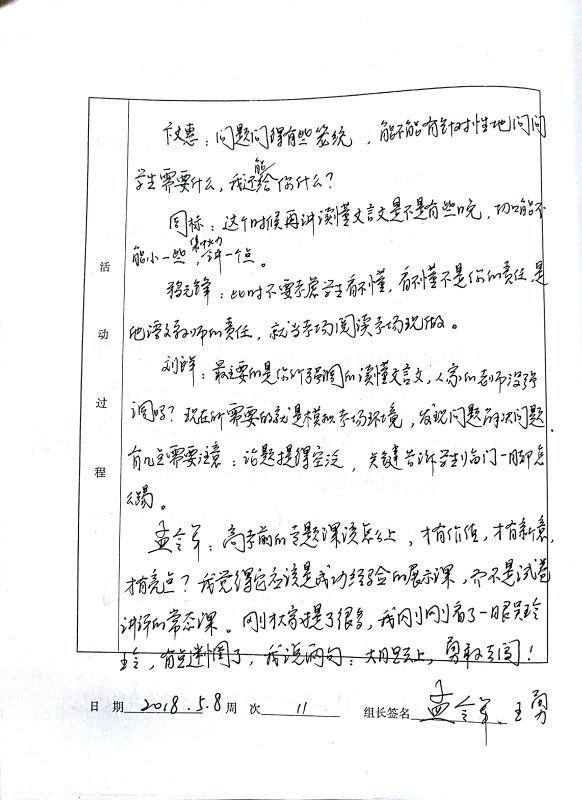 卞文惠：问题问得有些笼统，能不能有针对性地问问
学生需要什么，我还能给你什么？
周标：这个时候再讲读懂文言文是不是有些晚，切口能不
能小一些，集中火力讲一个点。
程元锋：此时不要考虑学生懂不懂，有不懂不是你的责任，是
他语文教师的责任，就当考场阅读考场现做。
刘洋：最主要的是你所强调的读懂文言文，人家的老师没强
调吗？现在所需要的就是模拟考场环境，发现问题解决问题。
有几点需要注意：话题提得空泛，关键告诉学生临门一脚怎
么踢。
孟令军：高考前的专题课该怎么上，才有价值，才有新意，
才有亮点？我觉得它应该是成功经验的展示课，而不是试卷
讲评的常态课。刚才大家提了很多，我刚刚看了一眼吴玲
玲，有点迷惘了，我说两句：大胆去上，勇敢去闯！
活动过程
日 期 2018.5.8 周 次 11 组长签名 孟令军、王勇